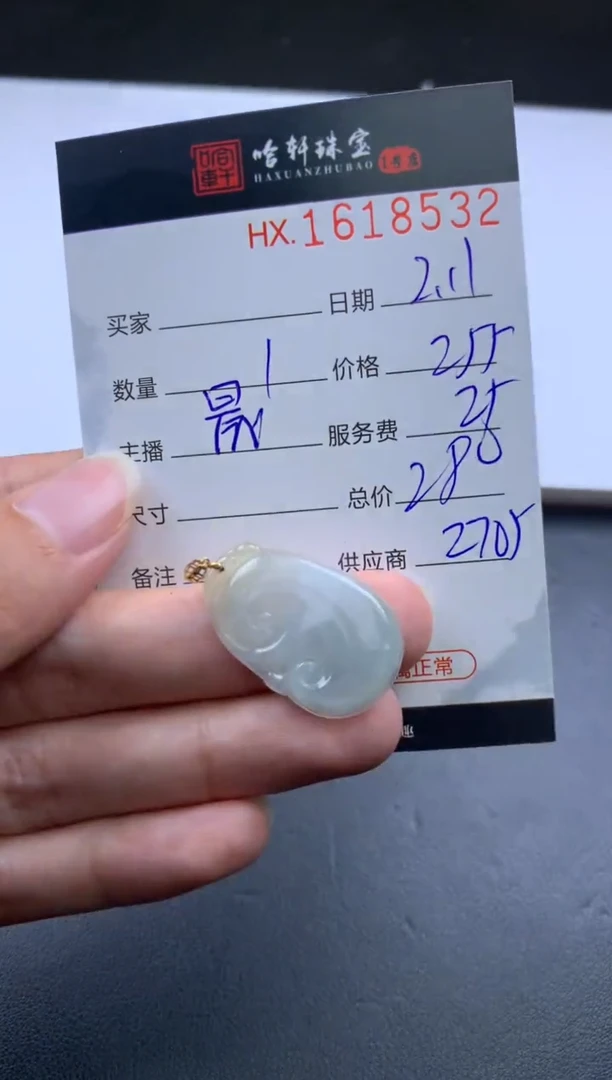 哈轩珠宝
HAXUANZHUBAO
HX.1618532
买家 日期 2.11
数量 1 价格 255
主播 服务费 25
尺寸 总价 280
备注 供应商 2705
正常